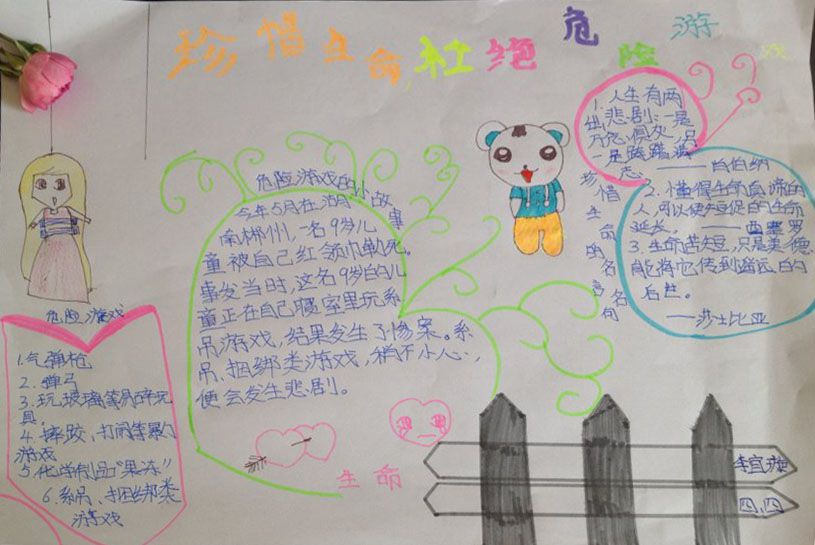 珍惜生命,杜绝危险游戏
危险游戏的小故事
今年5月在湖
南郴州,一名9岁儿
童被自己红领巾勒死。
事发当时,这名9岁的儿
童正在自己寝室里玩系
吊游戏,结果发生了惨案。系
吊、捆绑类游戏,稍不小心,
便会发生悲剧。
1.人生有两
出悲剧:一是
万念俱灰;
一是踌躇满
志——白伯纳
珍惜生命的名言名句
2.懂得生命真谛的
人,可以使短促的生命
延长。——西塞罗
3.生命苦短,只是美德
能将它传到遥远的
后世。
——莎士比亚
危险游戏
1.气弹枪
2.弹弓
3.玩玻璃等易碎玩
具.
4.摔跤,打闹等暴力
游戏
5.化学制品"果冻"
6.系吊、捆绑类
游戏
生命
四.四